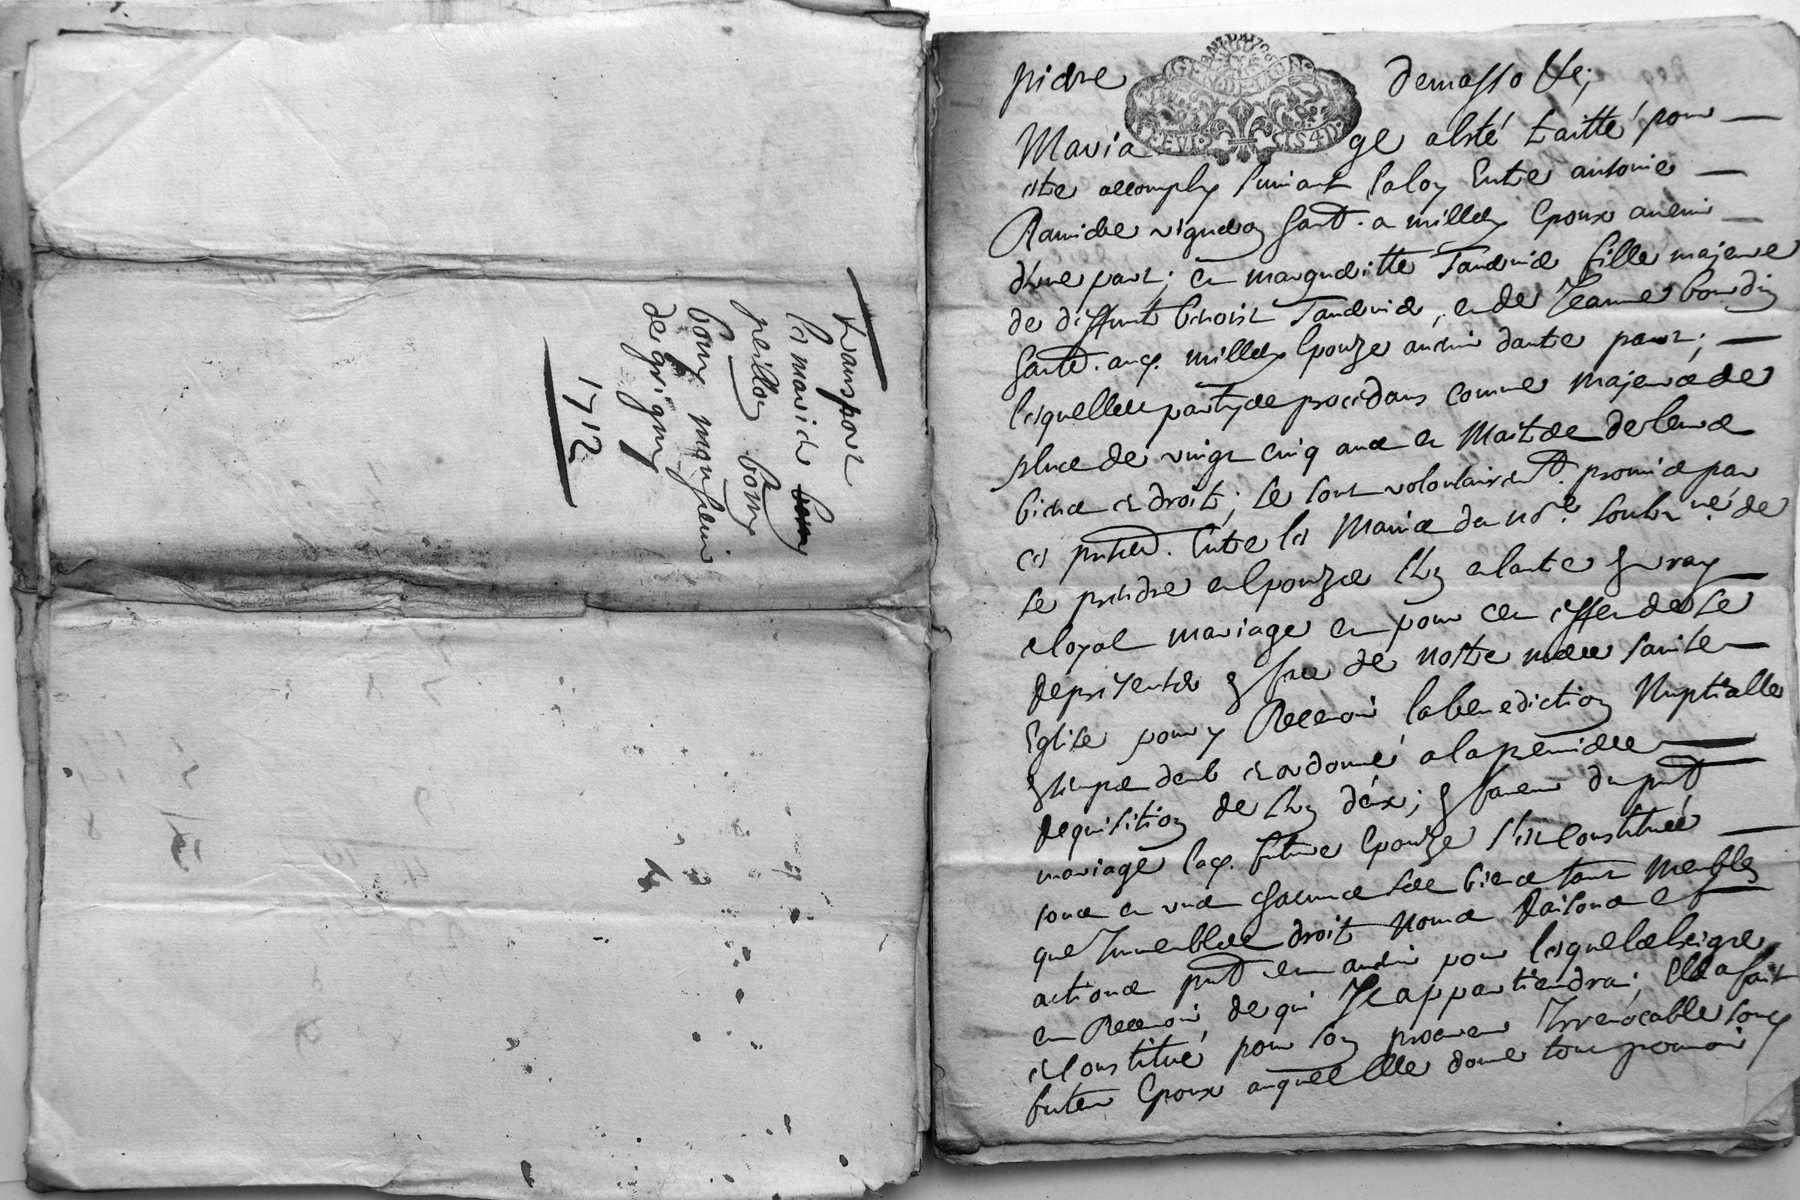 transport
les mariés
peillon bony
bony
de grigny
1712
pierre demassotte;
Maria ge a esté traitté pour
estre accomply suivant la loy Entre antoine
vigneron hant. a millery Epoux avenir
d'une part; et margueritte fille majeure
de deffunt benoist et de Jeanne bourdin
hante. aud. millery Epouze avenir dautre part;
lesquelles partyes procedans comme majeures de
plus de vingt cinq ans et Maitres de leurs
biens et droits; se sont volontairemt. promis par
ces pntes. Entre les Mains du nore. soubzné. de
se prendre en Epouzes l'un et lautre en vray
et loyal mariage et pour cet effet de se
representer en face de nostre mere sainte
Eglise pour y Recevoir la benediction Nuptialle
en temps deub et ordonné a la premiere
Requisition de l'un deux; en faveur du pnt
mariage lad. future Epouze s'est Constituée
tous et uns ses biens tant Meubles
que Immeubles droits Noms Raisons et
actions pnts et avenir pour lesquels
et Recevoir de qui Il appartiendra; Elle a fait
et Constitué pour son procureur Irrevocable sond.
futeur Epoux auquel Elle donne tout pouvoir